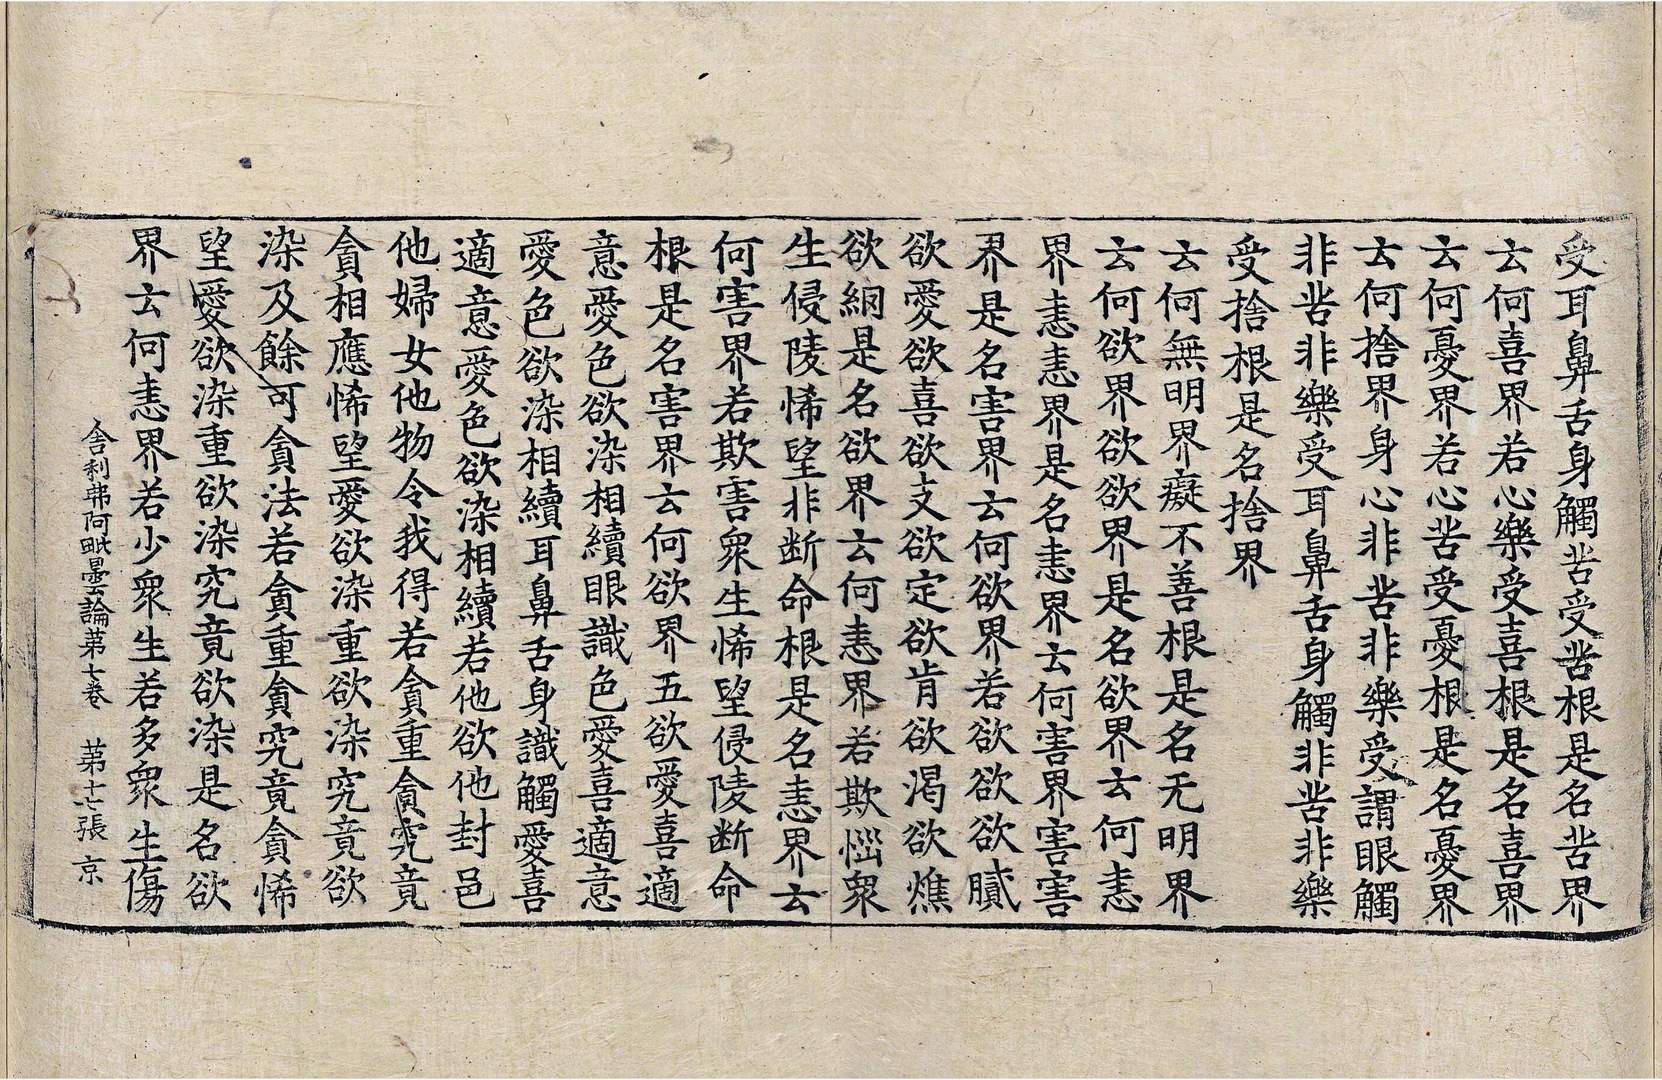 受耳鼻舌身觸苦受苦根是名苦界
云何喜界若心樂受喜根是名喜界
云何憂界若心苦受憂根是名憂界
云何捨界身心非苦非樂受謂眼觸
非苦非樂受耳鼻舌身觸非苦非樂
受捨根是名捨界
云何無明界癡不善根是名无明界
云何欲界欲欲界是名欲界云何恚
界恚恚界是名恚界云何害界害害
界是名害界云何欲界若欲欲欲膩
欲愛欲喜欲支欲定欲肯欲渴欲燋
欲網是名欲界云何恚界若欺惱衆
生侵陵悕望非断命根是名恚界云
何害界若欺害衆生悕望侵陵断命
根是名害界云何欲界五欲愛喜適
意愛色欲染相續眼識色愛喜適意
愛色欲染相續耳鼻舌身識觸愛喜
適意愛色欲染相續若他欲他封邑
他婦女他物令我得若貪重貪究竟
貪相應悕望愛欲染重欲染究竟欲
染及餘可貪法若貪重貪究竟貪悕
望愛欲染重欲染究竟欲染是名欲
界云何恚界若少衆生若多衆生傷
舍利弗阿毗曇論第七卷　第十七張　京